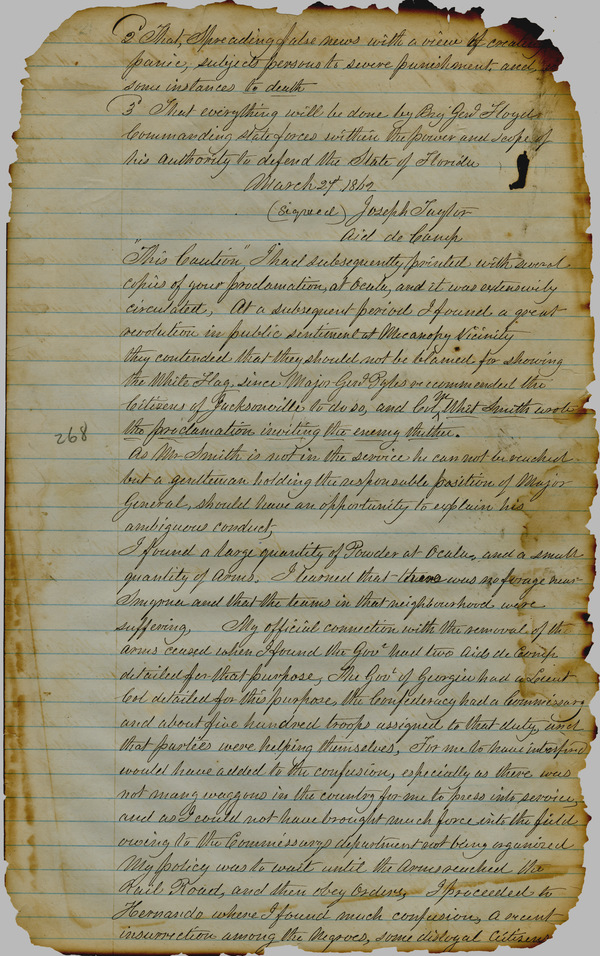 2d That, Spreading false news with a view of
panic, subjects persons to severe punishment, and
some instances to death
3d That everything will be done by Brig Genl Floyd
Commanding state forces within the power and scope of
his authority to defend the State of Florida
March 27 1862
(signed) Joseph Taylor
Aid de Camp
"This Caution" I had subsequently printed with several
copies of your proclamation, at Ocala, and it was extensively
circulated, At a subsequent period I found a great
revolution in public sentiment at Mecanopy Vicinity
they contended that they should not be blamed for showing
the White Flag, since Major Genl Dykes recommended the
Citizens of Jacksonville to do so, and Whit Smith wrote
the proclamation inviting the enemy thither.
268
As Mr Smith is not in the service he can not be reached
but a gentleman holding the responsible position of Major
General, should have an opportunity to explain his
ambiguous conduct,
I found a large quantity of Powder at Ocala, and a small
quantity of Arms. I learned that there was no forage near
Smyrna and that the teams in that neighbourhood were
suffering, My official connection with the removal of the
arms ceased when I found the Govr had two Aids de Camp
detailed for that purpose, The Govr of Georgia had a Lieut
Col detailed for this purpose, the Confederacy had a Commissary
and about five hundred troops assigned to that duty, and
that parties were helping themselves, For me to have interfered
would have added to the confusion, especially as there was
not many waggons in the country for me to press into service,
and as I could not have brought much force into the field
owing to the Commissarys department not being organized
My policy was to wait until the Arms reached the
Rail Road, and then obey Orders, I proceeded to
Hernando where I found much confusion, A recent
insurrection among the Negroes, some disloyal Citizens